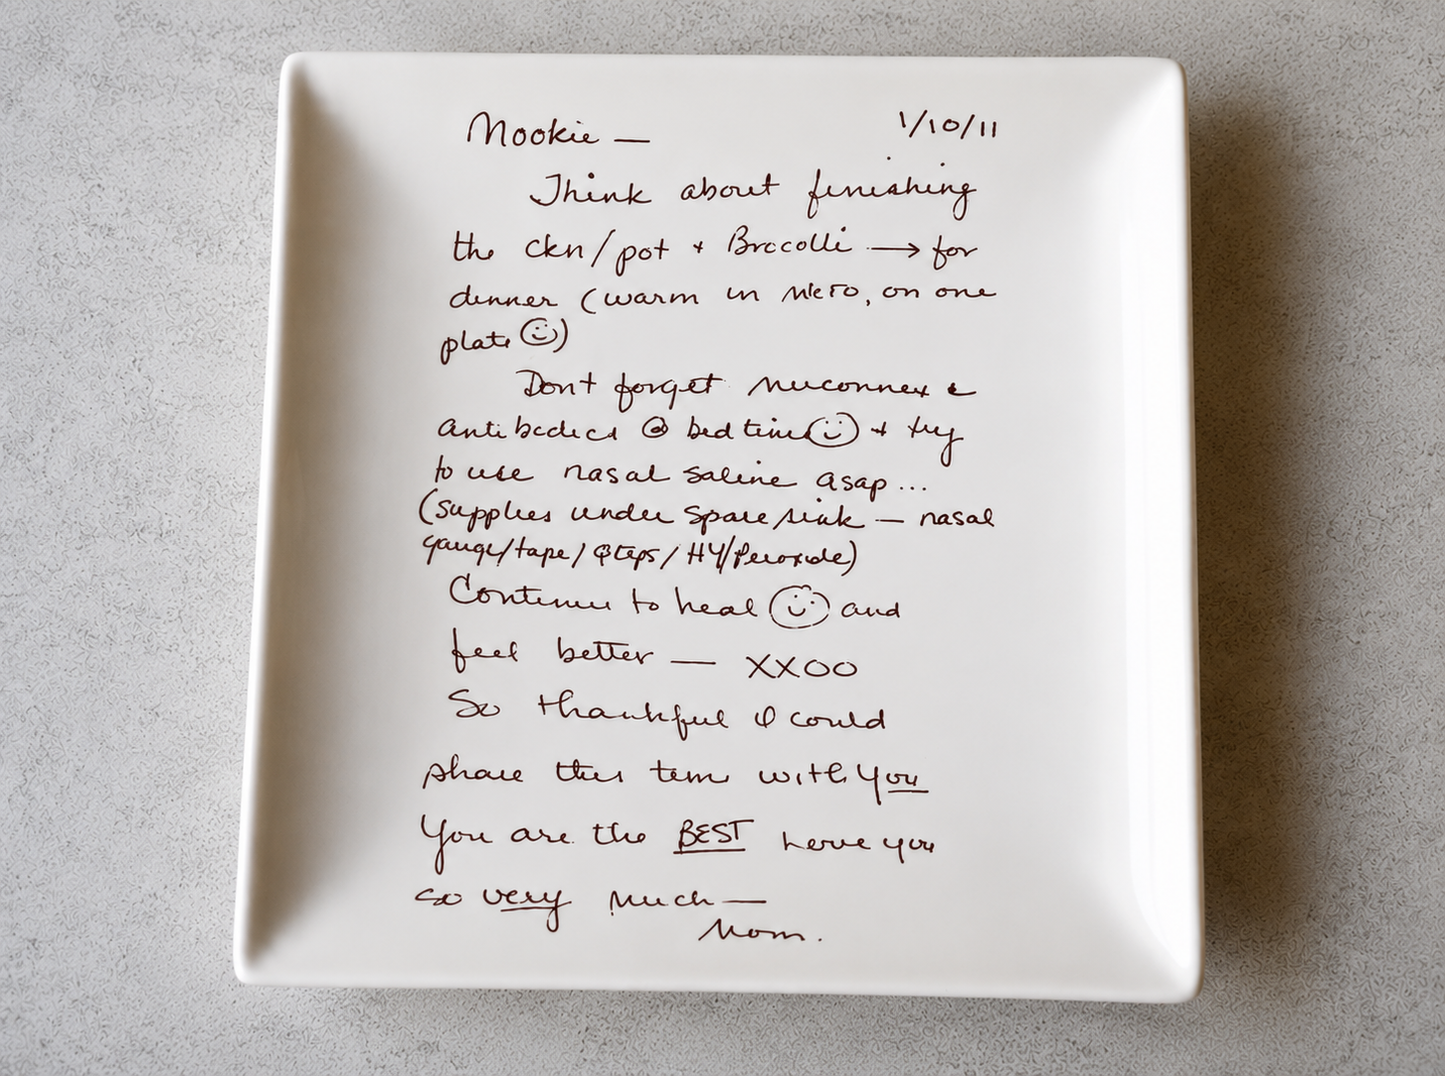 Mookie — 1/10/11
Think about finishing
the ckn/pot + Brocolli → for
dinner (warm in micro, on one
plate ☺)
Dont forget muconnex &
antibodies @ bedtime ☺ + try
to use nasal saline asap...
(supplies under spare sink — nasal
gauge/tape/Qteps/HY/Peroxide)
Continue to heal ☺ and
feel better — XXOO
So thankful I could
share this time with you
You are the BEST Love you
so very much —
Mom.